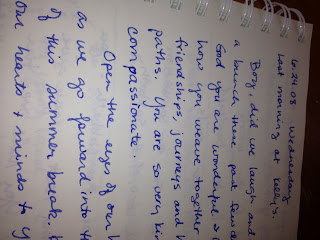 6.24.08 - Wednesday
Last morning at Kelly's.
Boy, did we laugh and
a bunch these past few d
God you are wonderful
how you weave together
friendships, journeys and
paths. You are so very kin
compassionate.
Open the eyes of our h
as we go forward into t
of this summer break.
our hearts + minds to y